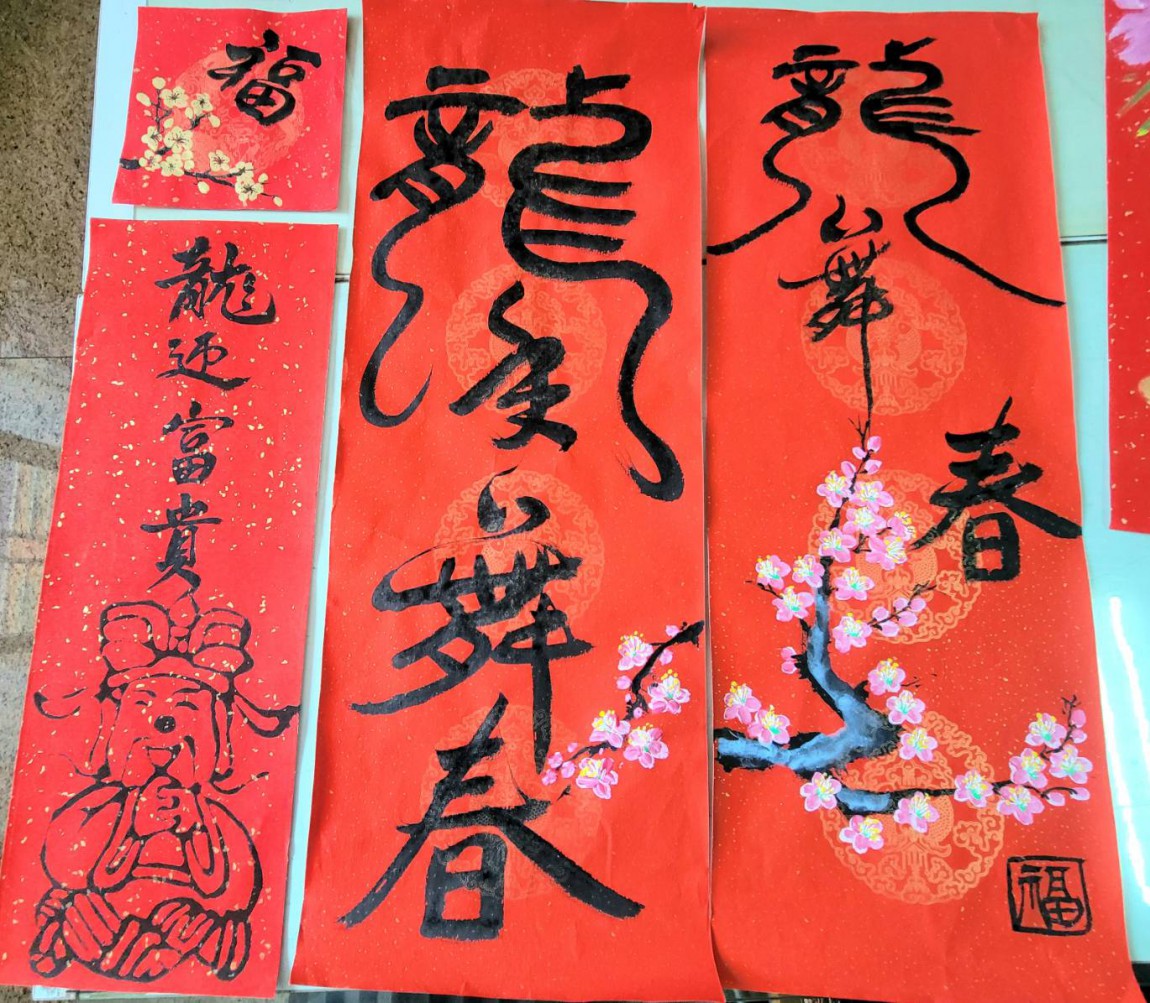 福
龍迎富貴
龍舞春
龍舞春
福